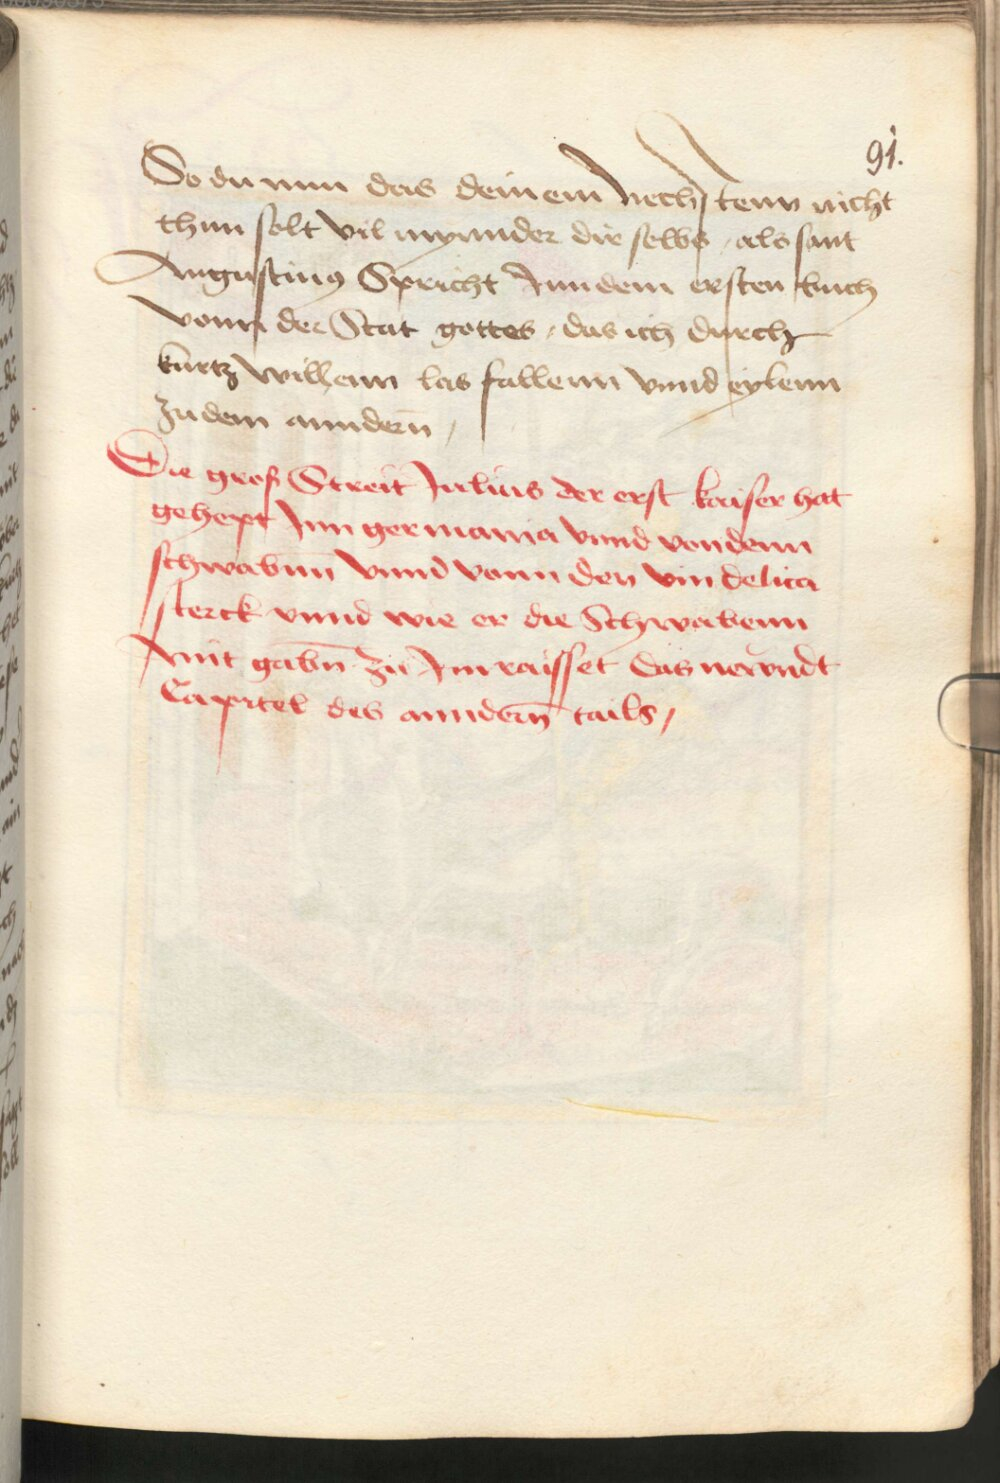 91.
So du nun das deinem nechstenn nicht
thun solt vil mynnder dir selbs, als sant
Augustinus Spricht Inn dem ersten buch
vonn der Stat gottes, das ich durch
kurtz willenn las fallenn vnnd eylenn
zu dem anndern,
Die groß Streit Julius der erst kaiser hat
gehept Inn germania vnnd von denn
schwabnn vnnd vonn den vindelica
sterck vnnd wie er die Schwabenn
mit gabn zu Im raisset das newndt
Capitel des anndern tails,